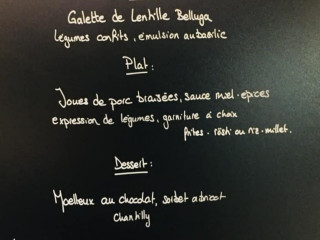 Galette de Lentille Belluga
légumes confits, émulsion au basilic
Plat :
Joues de porc braisées, sauce miel-épices
expression de légumes, garniture à choix
frites - rösti ou riz - millet.
Dessert :
Moelleux au chocolat, sorbet abricot
chantilly